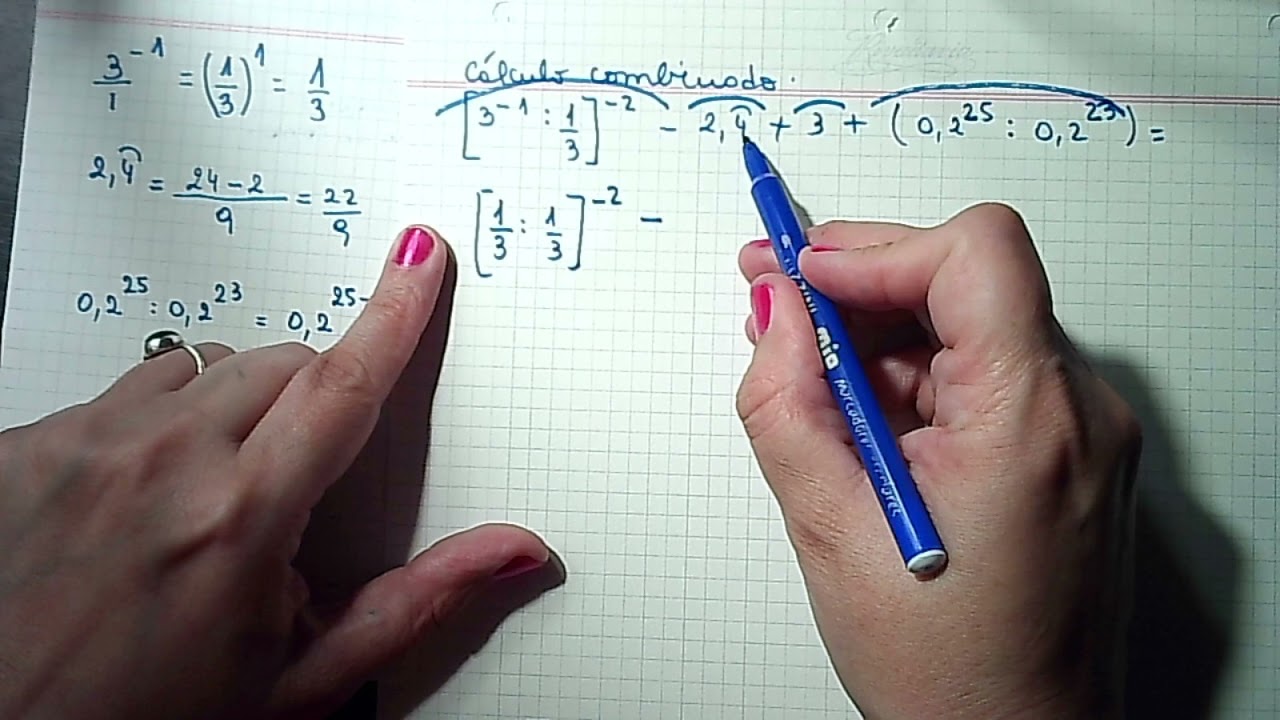 3⁻¹/1 = (1/3)¹ = 1/3
2,4̑ = (24 - 2)/9 = 22/9
0,2²⁵ : 0,2²³ = 0,2²⁵⁻
cálculo combinado.
[3⁻¹ : 1/3]⁻² - 2,4̑ + 3 + (0,2²⁵ : 0,2²³) =
[1/3 : 1/3]⁻² -
Rivadavia
mia